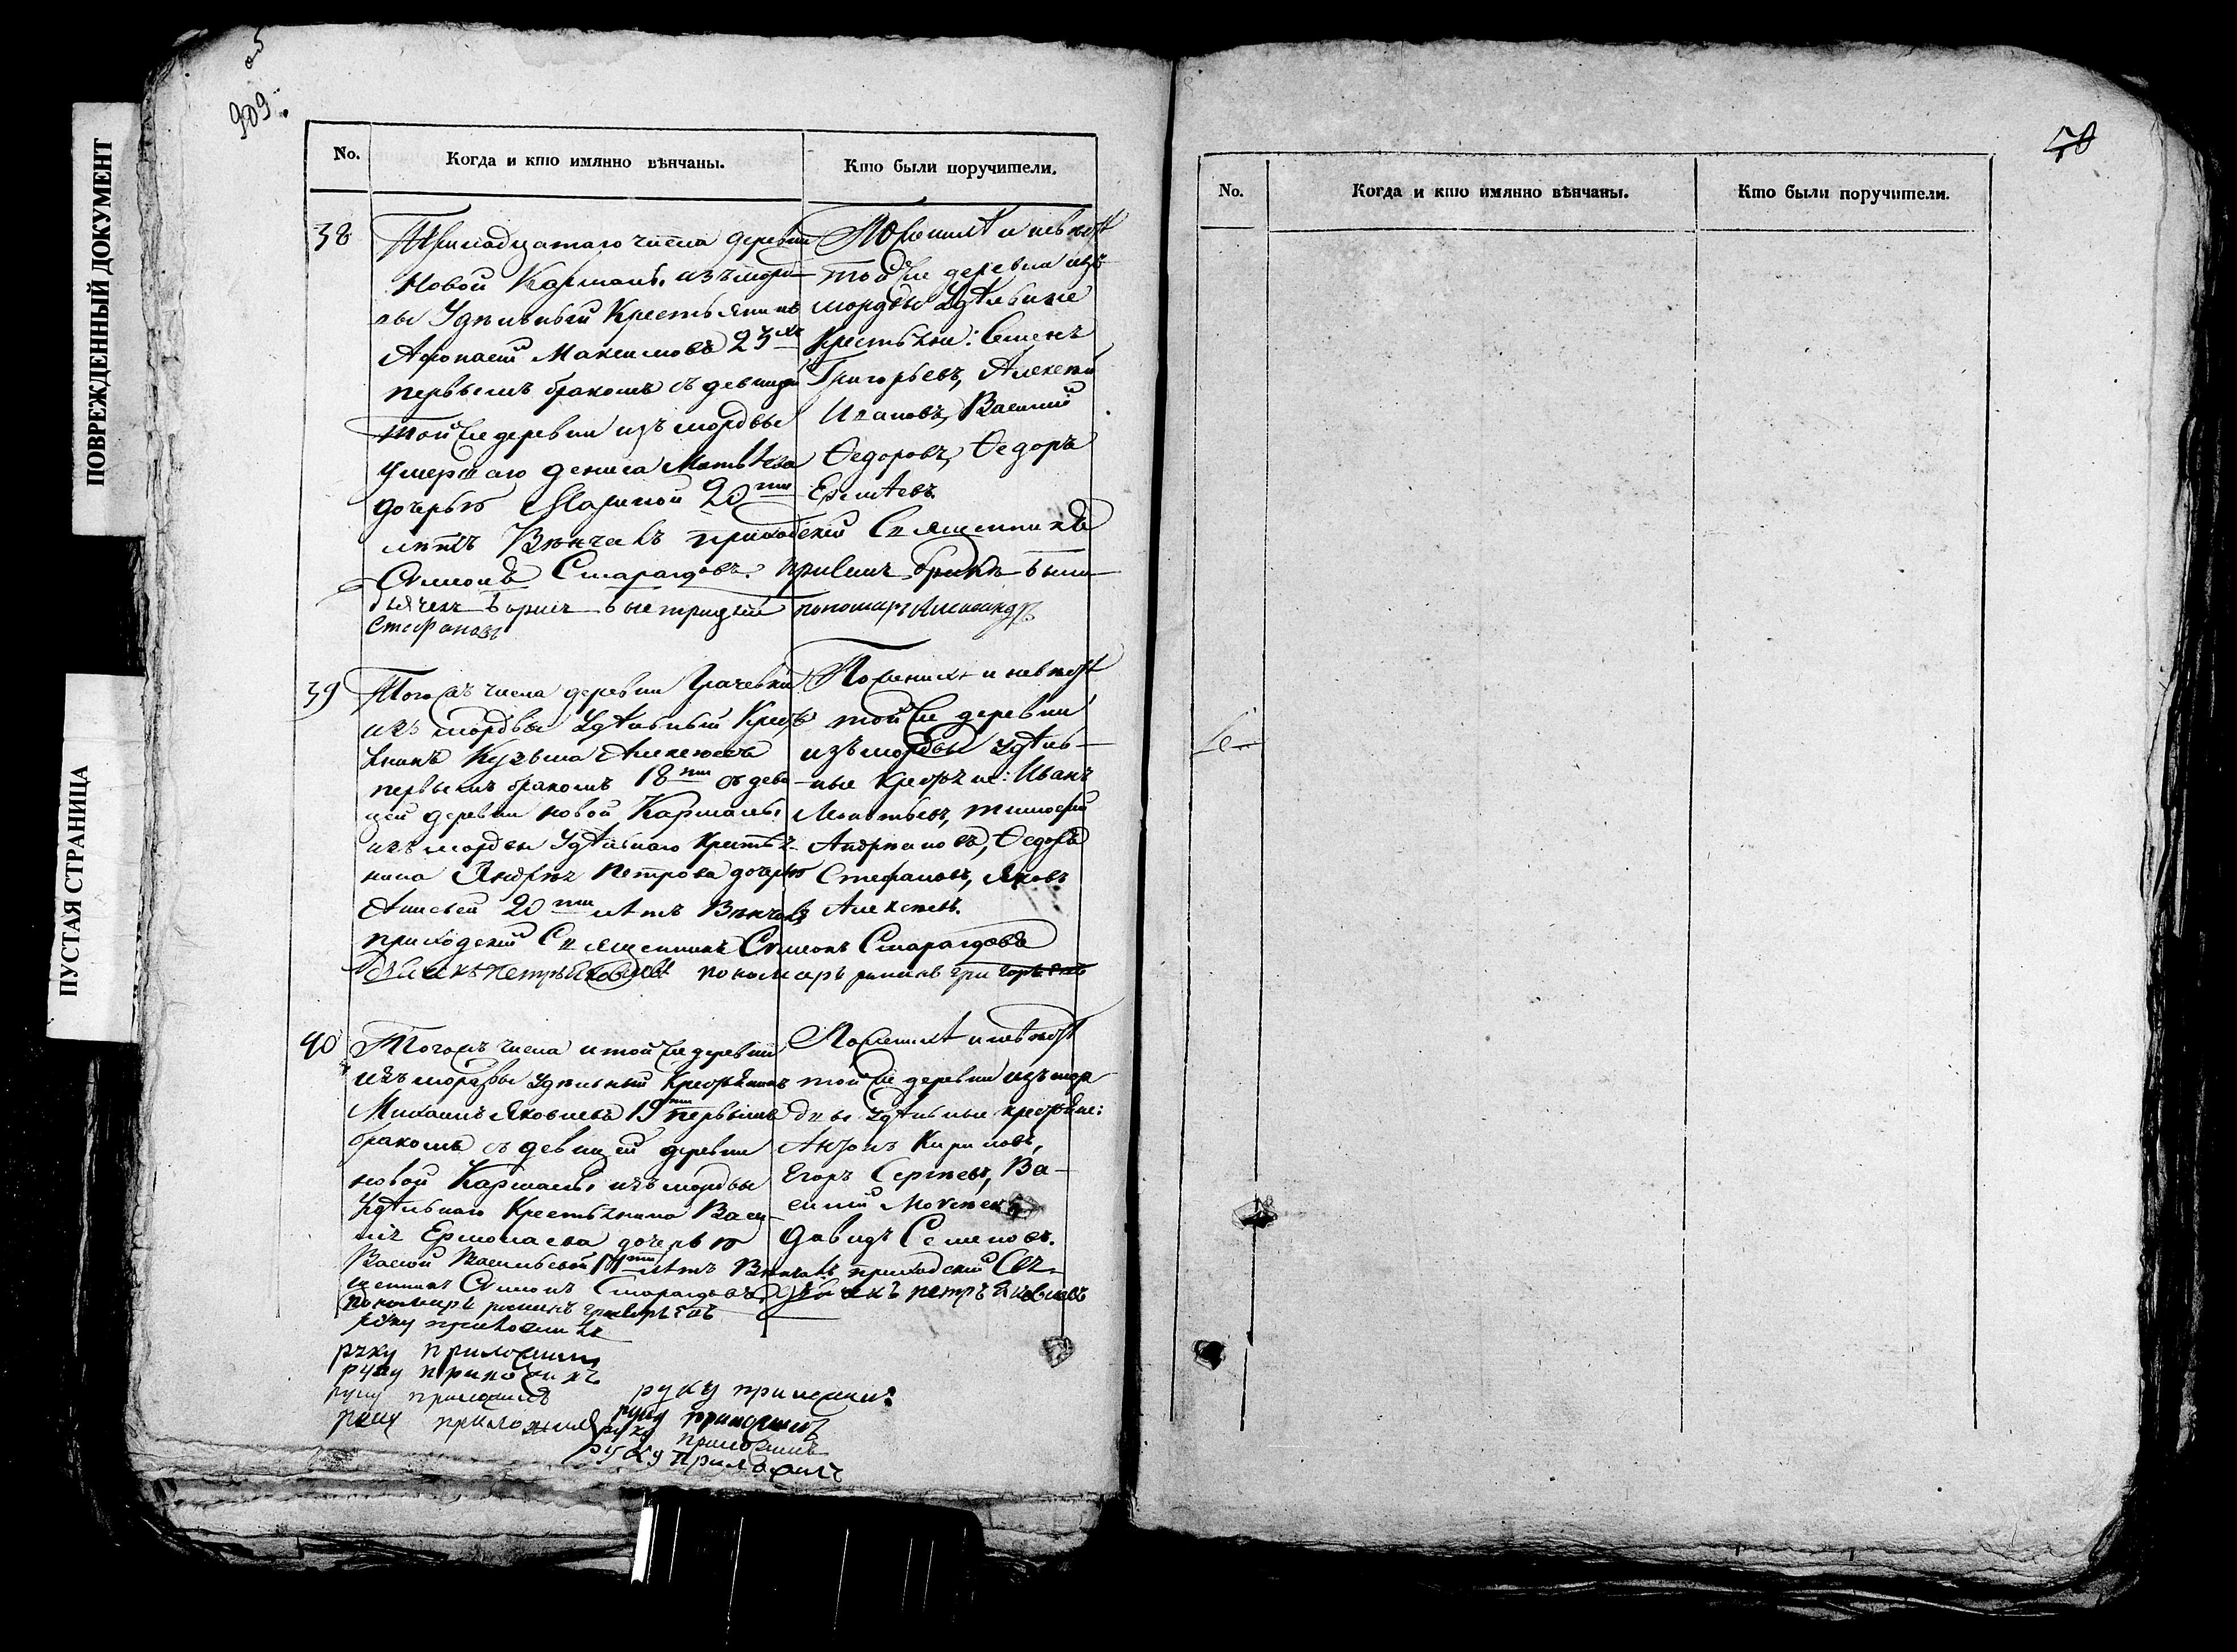 ПОВРЕЖДЕННЫЙ ДОКУМЕНТ
ПУСТАЯ СТРАНИЦА
909.
No.
Когда и кто имянно вѣнчаны.
Кто были поручители.
38
Тринадцатаго числа деревни
Новой Кармалы изъ морд-
вы Удѣльный Крестьянинъ
Афонасій Максимовъ 23хъ
первымъ бракомъ съ девицей
той же деревни изъ мордвы
умершаго Дениса Матвѣева
дочерью Мариной 20ти
лѣтъ Вѣнчалъ приходскій Священникъ
Симонъ Смарагдовъ. при семъ бракѣ были
дьячекъ Борисъ Быстрицкій пономарь Александръ
Стефановъ
По женихѣ и невѣстѣ
той же деревни изъ
мордвы Удѣльные
Крестьяне: Семенъ
Григорьевъ, Алексѣй
Ивановъ, Василий
Ѳедоровъ, Ѳедоръ
39
Того жъ числа деревни Грачевки
изъ мордвы Удѣльный Кресть-
янинъ Кузьма Алексѣевъ
первымъ бракомъ 18ти съ деви-
цей деревни новой Кармалы
изъ мордвы Удѣльнаго Крестья-
нина Андрѣя Петрова дочерью
20ти лѣтъ Вѣнчалъ
приходскій Священникъ Симонъ Смарагдовъ
дьячекъ Петръ Яковлевъ пономарь Григорьевъ
По женихѣ и невѣстѣ
той же деревни
изъ мордвы удѣль-
ные Крестьяне: Иванъ
Тимофей
Андрияновъ, Ѳедоръ
Стефановъ, Яковъ
Алексѣевъ.
40
Того жъ числа и той же деревни
изъ мордвы удѣльный Крестьянинъ
Михаилъ Яковлевъ 19ти первымъ
бракомъ съ девицей деревни
новой Кармалы изъ мордвы
Удѣльнаго Крестьянина Васи-
лья Ермолаева дочерью
Васильевой лѣтъ Вѣнчалъ приходскій Свя-
щенникъ Симонъ Смарагдовъ дьячекъ Петръ Яковлевъ
пономарь Григорьевъ
По женихѣ и невѣстѣ
той же деревни изъ мор-
двы удѣльные крестьяне:
Антонъ Кириловъ,
Егоръ Сергѣевъ, Ва-
силий
Давидъ Семеновъ.
руку приложилъ
руку приложилъ
руку приложилъ
руку приложилъ
руку приложилъ
руку приложилъ
руку приложилъ
руку приложилъ
руку приложилъ
70
No.
Когда и кто имянно вѣнчаны.
Кто были поручители.